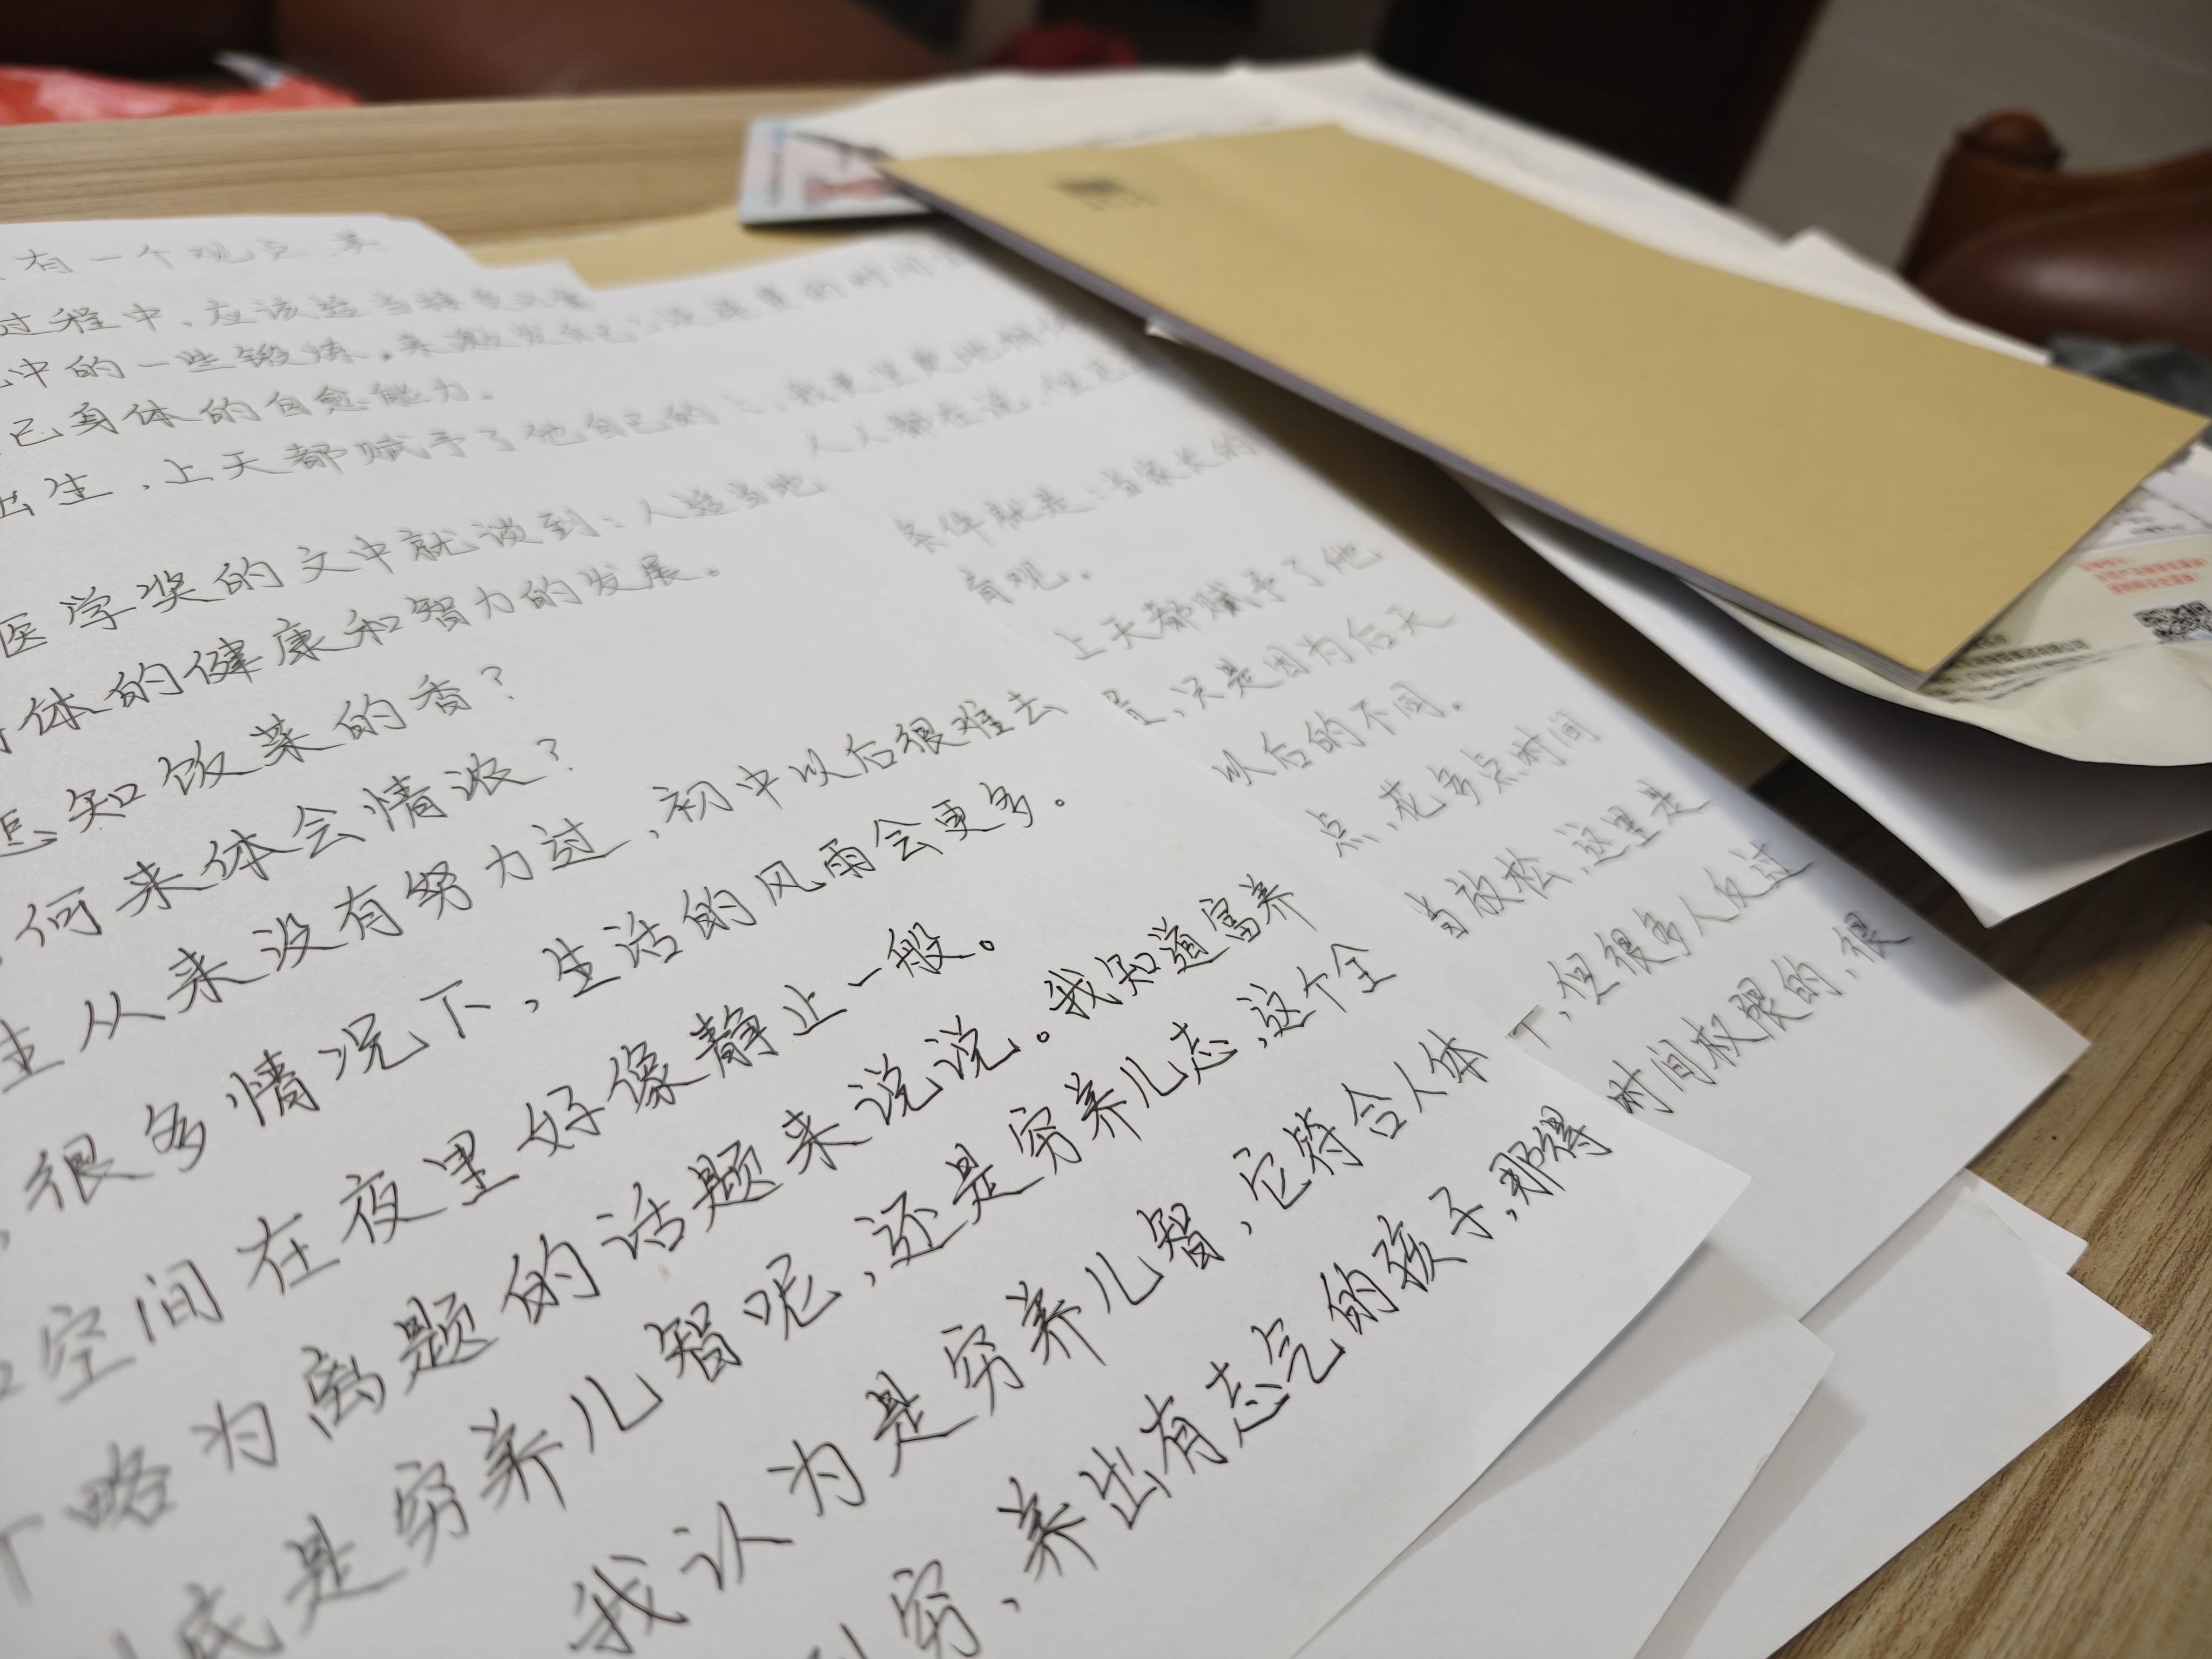 有一个观点，其
过程中，应该适当接受
中的一些锻炼，来激发自己
己身体的自愈能力。
出生，上天都赋予了他自己的
医学奖的文中就谈到：人适当地
体的健康和智力的发展。
知饭菜的香？
何来体会情浓？
生从来没有努力过，初中以后很难去
，很多情况下，生活的风雨会更多。
空间在夜里好像静止一般。
个略为离题的话题来说说。我知道富养
底是穷养儿智呢，还是穷养儿态，这个全
我认为是穷养儿智，它符合人体
穷，养出有态气的孩子，那得
的时间
，我更坚定地相信
人人都在说，但
条件就是：当家长的
育观。
上天都赋予了他
，只是因为后天
以后的不同。
点，花多点时间
当放松，这里是
下，但很多人仅过
时间权限的，很